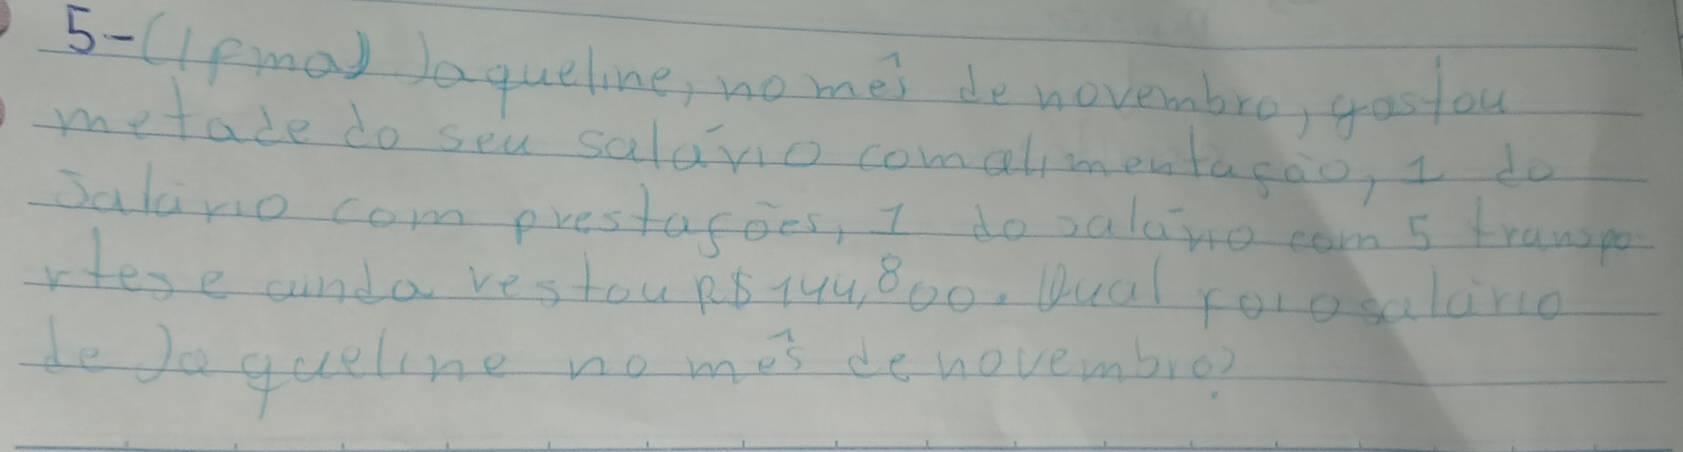 5-(Ifma) Jaqueline, no mês de novembro, gastou
metade do seu salário com alimentação, 1 do
salário com prestações, 1 do salário com 5 transpo
rtes e ainda restou R$ 144,800. Qual foi o salário
de Jaqueline no mês de novembro?